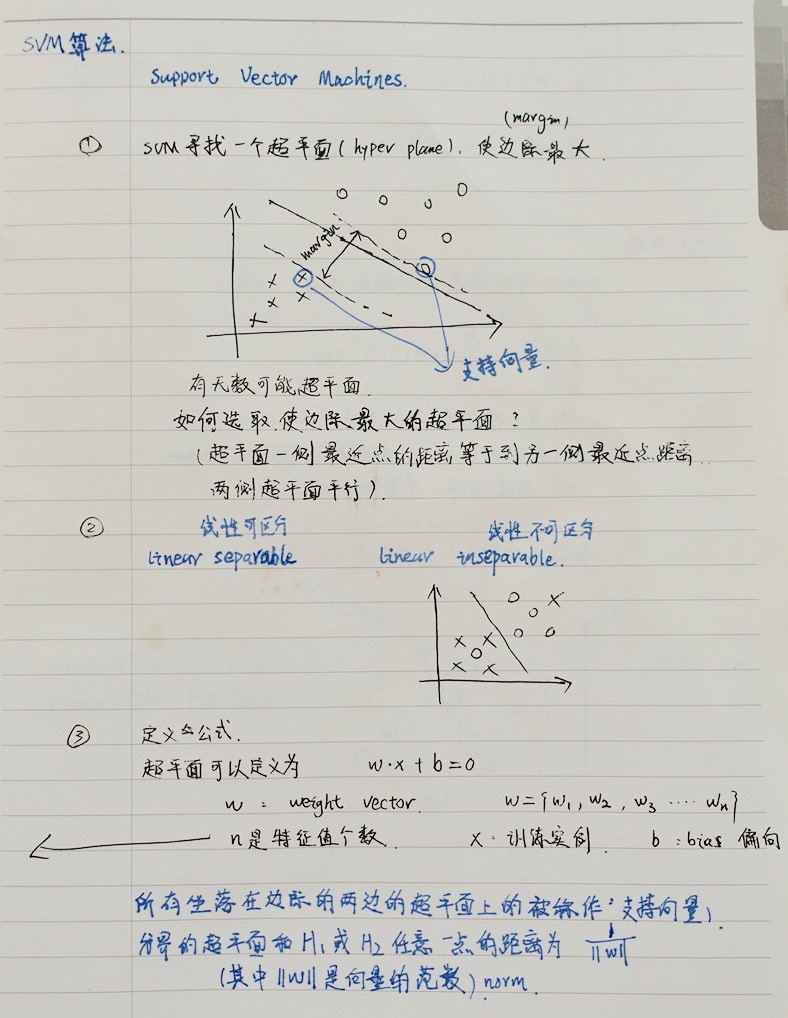 SVM算法.
Support Vector Machines.
(margin)
① SVM寻找一个超平面(hyper plane).使边际最大.
margin
支持向量.
有无数可能超平面.
如何选取.使边际最大的超平面?
(超平面一侧最近点的距离等于到另一侧最近点距离..
两侧超平面平行).
② 线性可区分 线性不可区分
Linear separable Linear inseparable.
③ 定义与公式.
超平面可以定义为 w·x+b=0
w: weight vector. w={w1, w2, w3 ···· wn}
n是特征值个数. x:训练实例. b:bias 偏向
所有坐落在边际的两边的超平面上的被称作:支持向量).
分界的超平面和H1或H2任意一点的距离为 1/||w||
(其中||W||是向量的范数) norm.